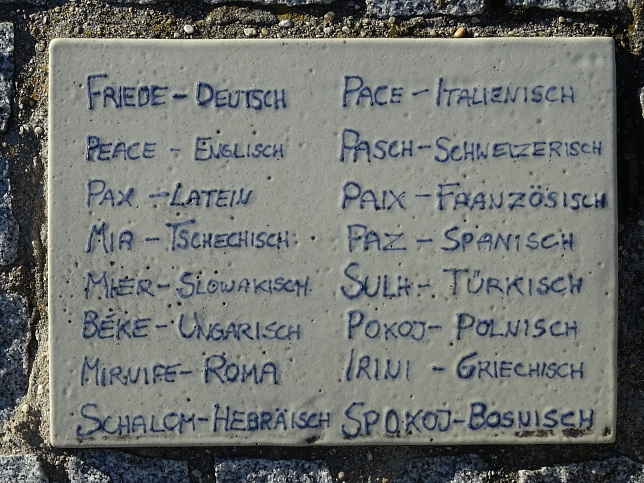 FRIEDE - DEUTSCH
PEACE - ENGLISCH
PAX - LATEIN
MIR - TSCHECHISCH
MIER - SLOWAKISCH
BÉKE - UNGARISCH
MIRNIFE - ROMA
SCHALOM - HEBRÄISCH
PACE - ITALIENISCH
PASCH - SCHWEIZERISCH
PAIX - FRANZÖSISCH
PAZ - SPANISCH
SULH - TÜRKISCH
POKOJ - POLNISCH
IRINI - GRIECHISCH
SPOKOJ - BOSNISCH